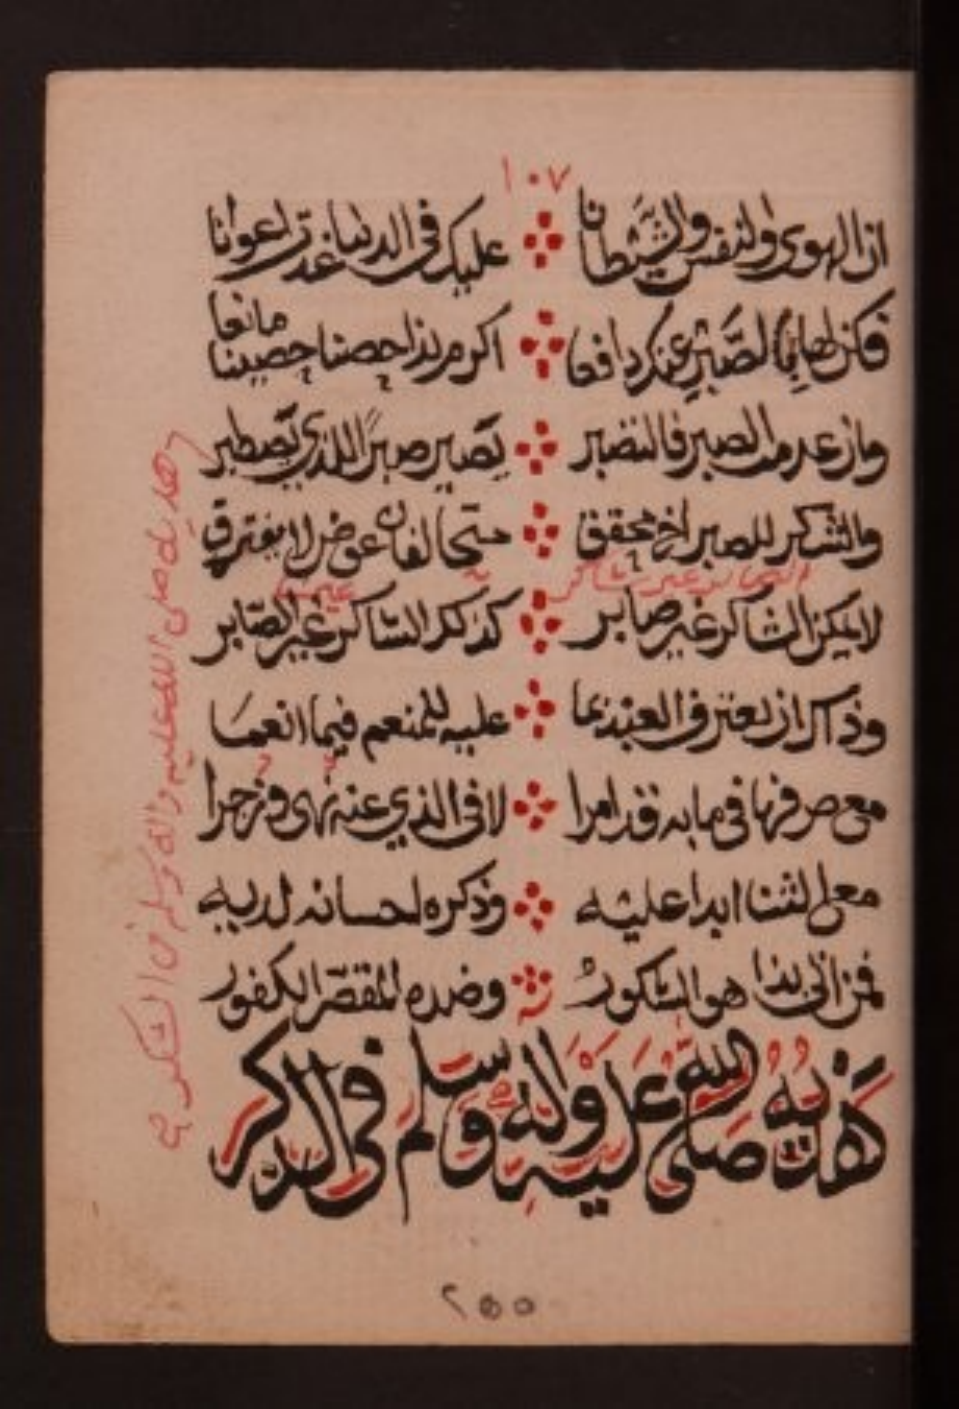 ١٠٧
ان الهوى والنفس والشيطانا عليك في الدنيا غدت اعوانا
فكن لها بالصبر عنك دافعا اكرم بذا حصنا حصينا مانعا
وان عدمت الصبر فالتصبر تصير صبرا للذي يصطبر
والشكر للصبر اخ محقق متحالفان عوض لا يفترق
لا يمكن الشاكر غير صابر كذلك الشاكر غير الصابر
وذاك ان يعترف العبد بما عليه للمنعم فيما انعما
مع صرفها في ما به قد امرا لا في الذي عنه نهى وزجرا
مع الثنا ابدا عليه وذكره لحسانه لديه
فمن اتى بذا هو الشكور وضده المقصر الكفور
هديه صلى الله عليه واله وسلم في الذكر
هديه صلى الله عليه واله وسلم في الشكر